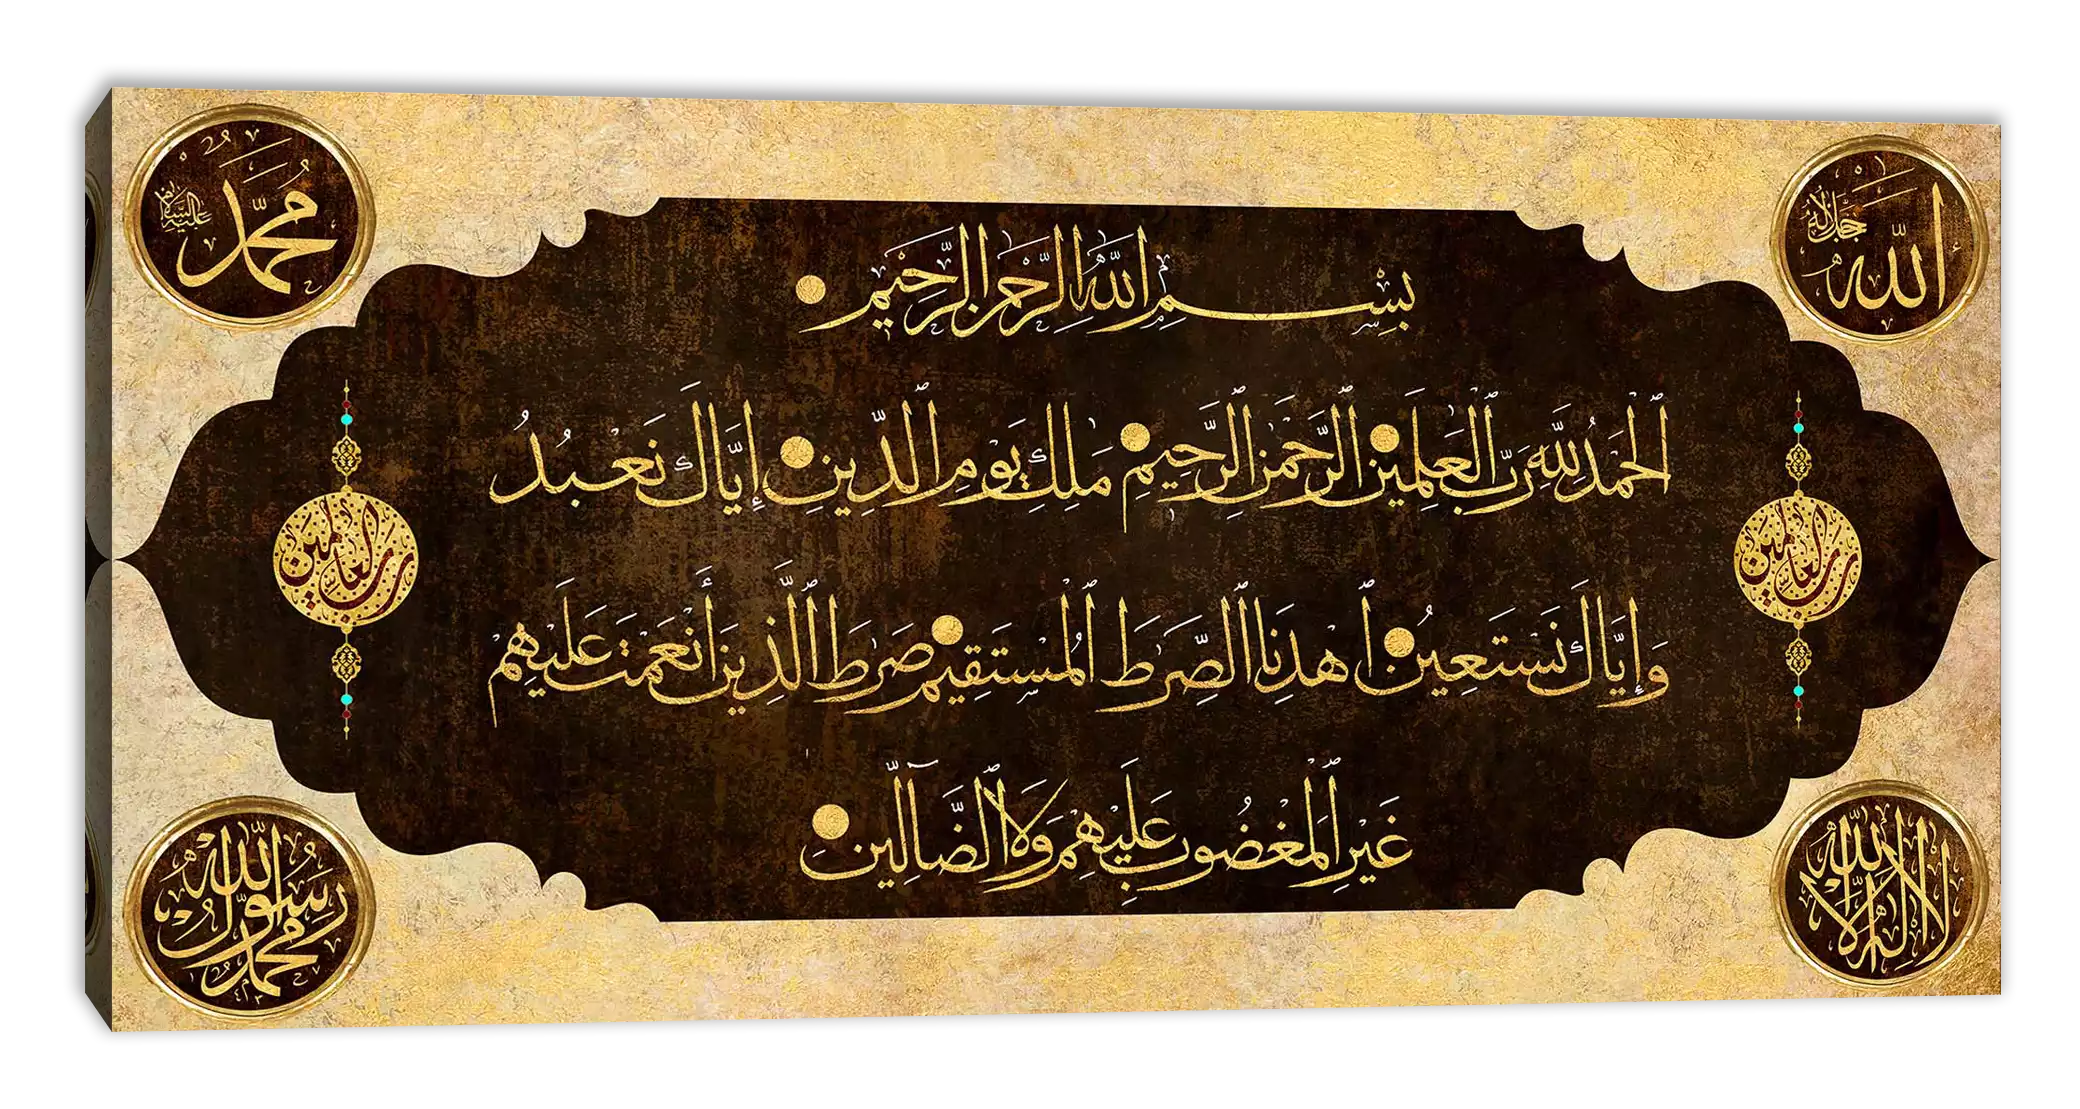 الله جل جلاله
محمد عليه السلام
بِسْمِ اللهِ الرَّحْمنِ الرَّحِيمِ
ٱلْحَمْدُ لِلَّهِ رَبِّ ٱلْعَٰلَمِينَ ٱلرَّحْمَٰنِ ٱلرَّحِيمِ مَٰلِكِ يَوْمِ ٱلدِّينِ إِيَّاكَ نَعْبُدُ
وَإِيَّاكَ نَسْتَعِينُ ٱهْدِنَا ٱلصِّرَٰطَ ٱلْمُسْتَقِيمَ صِرَٰطَ ٱلَّذِينَ أَنْعَمْتَ عَلَيْهِمْ
غَيْرِ ٱلْمَغْضُوبِ عَلَيْهِمْ وَلَا ٱلضَّآلِّينَ
رب العالمين
رب العالمين
لا إله إلا الله
محمد رسول الله